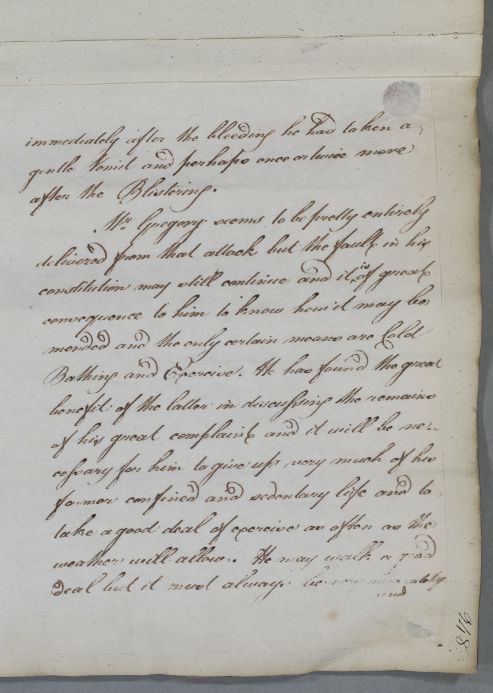 immediately after the bleeding he had taken a
gentle Vomit and perhaps once or twice more
after the Blistering.
Mr Gregory seems to be pretty entirely
delivered from that attack but the fault in his
constitution may still continue and it is of great
consequence to him to know how it may be
mended and the only certain means are Cold
Bathing and Exercise. He has found the great
benefit of the latter in discussing the remains
of his great complaint and it will be ne-
cessary for him to give up very much of his
former confined and sedentary life and to
take a good deal of exercise as often as the
weather will allow. He may walk a good
deal but it must always be very moderately
and